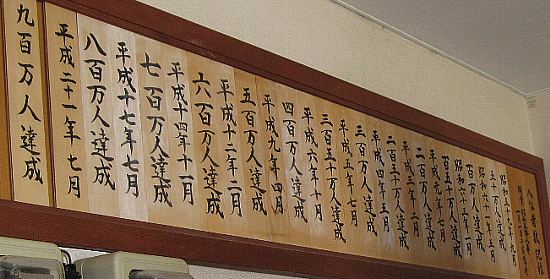 昭和五十九年九月
五十万人達成
昭和六十一年五月
百万人達成
昭和六十
百五十万人達成
平成元年七月
二百万人達成
平成三年二月
二百五十万人達成
平成四年五月
三百万人達成
平成五年七月
三百五十万人達成
平成六年十月
四百万人達成
平成九年四月
五百万人達成
平成十二年二月
六百万人達成
平成十四年十一月
七百万人達成
平成十七年七月
八百万人達成
平成二十一年七月
九百万人達成